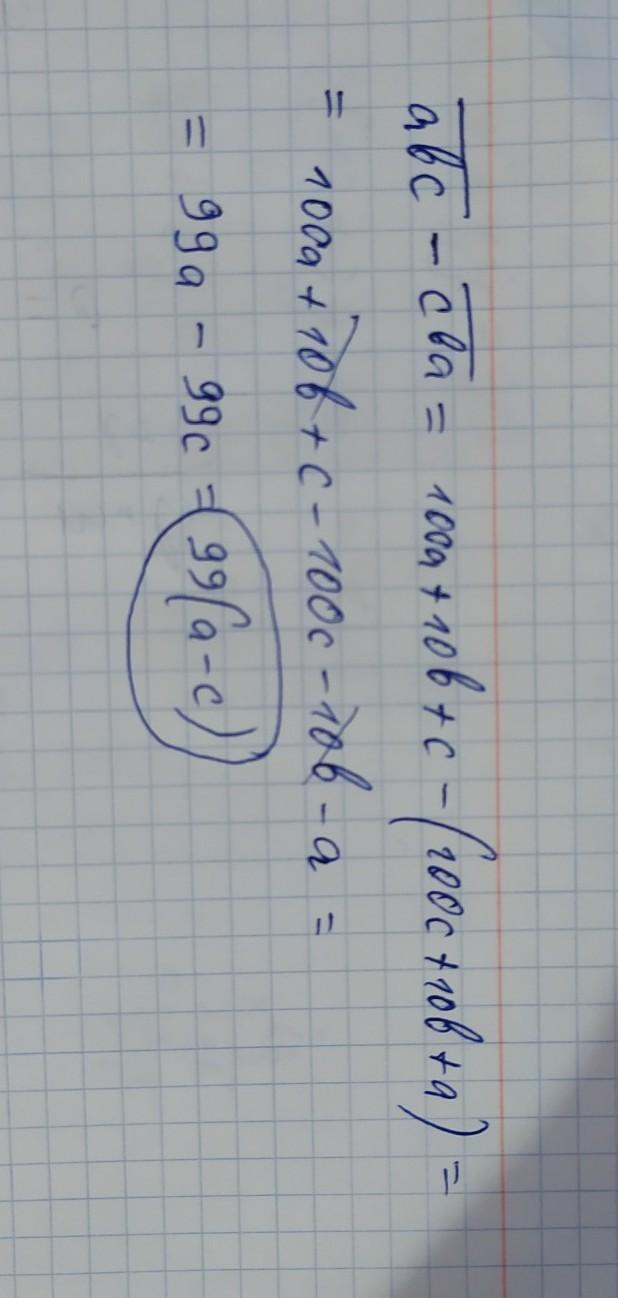 abc - cba = 100a + 10b + c - (100c + 10b + a) =
= 100a + 10b + c - 100c - 10b - a =
= 99a - 99c = 99(a - c)